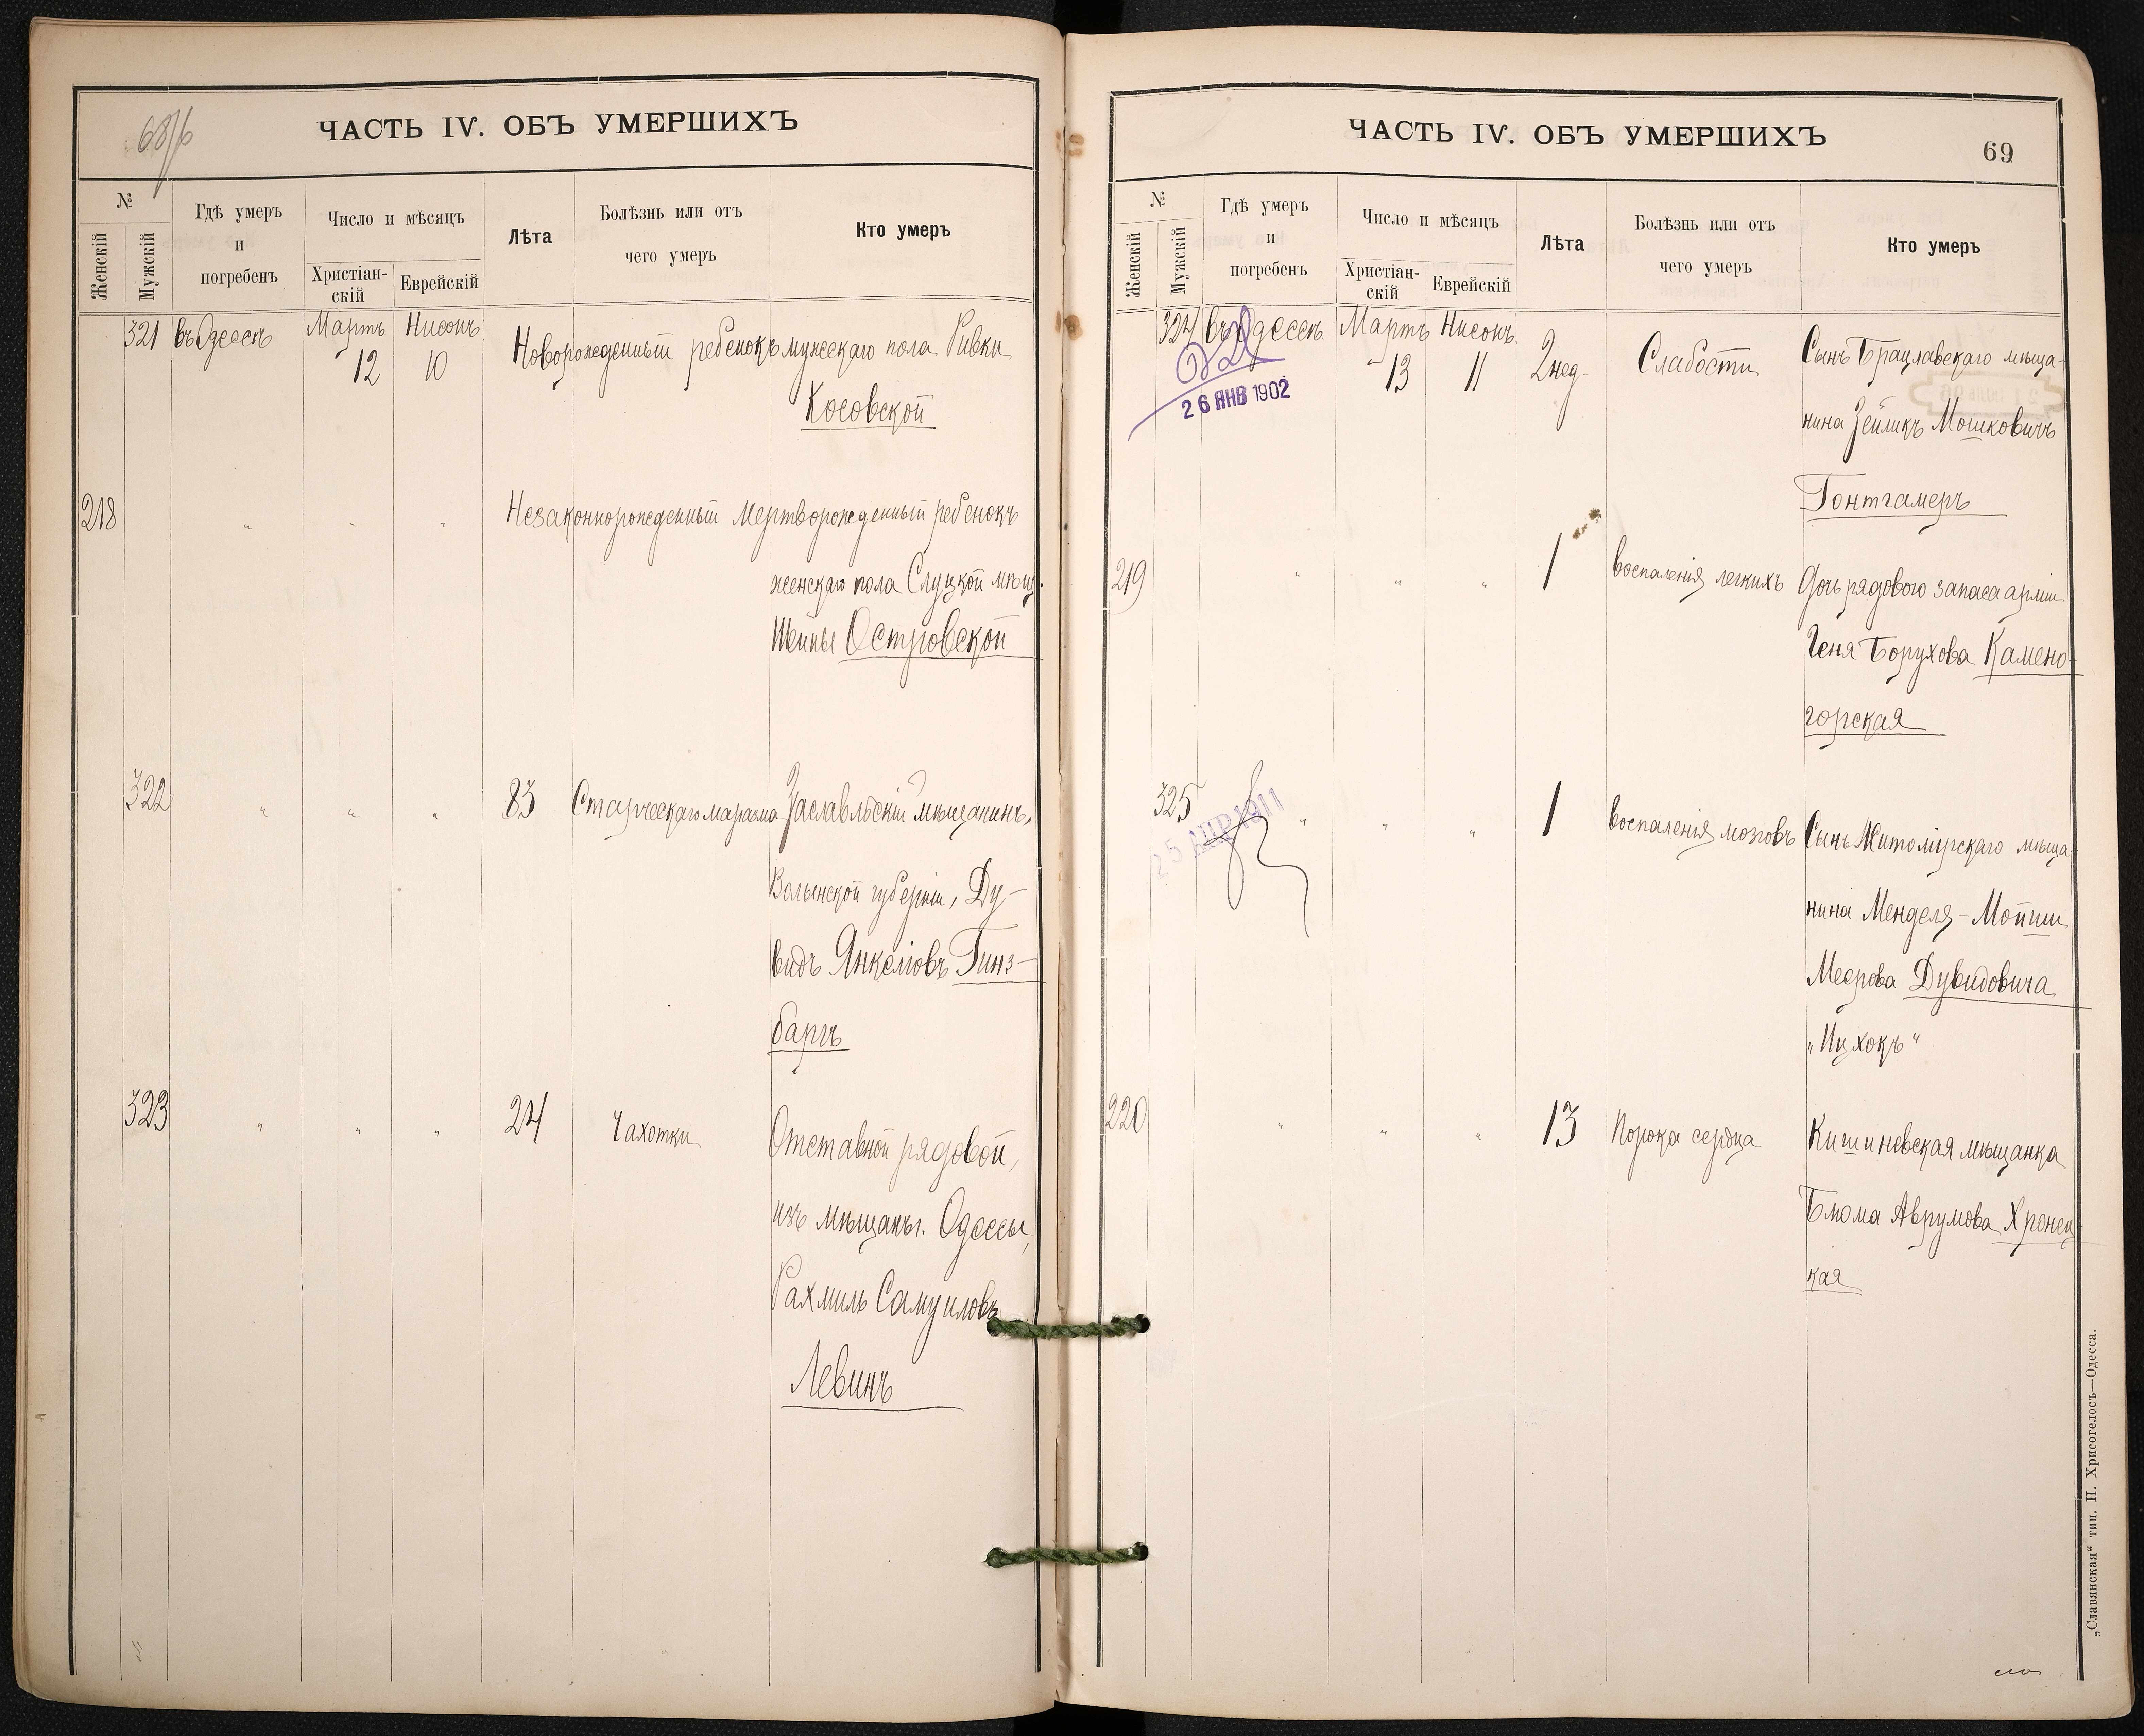 ЧАСТЬ IV. ОБЪ УМЕРШИХЪ
№
Женскій
Мужскій
Гдѣ умеръ
и
погребенъ
Число и мѣсяцъ
Христіан-
скій
Еврейскій
Лѣта
Болѣзнь или отъ
чего умеръ
Кто умеръ
321 въ Одессѣ Мартъ Нисонъ Новорожденный ребенокъ мужескаго пола Ривки
12 10
Косовской
218 " " " Незаконнорожденный мертворожденный ребенокъ
женскаго пола Слуцкой мѣщ.
Шейны Островской
322 " " " 83 Старческаго маразма Заславльскій мѣщанинъ,
Волынской губерніи, Ду-
видъ Янкеліовъ Гинз-
баргъ
323 " " " 24 Чахотки Отставной рядовой,
изъ мѣщанъ г. Одессы,
Рахмиль Самуиловъ
Левинъ
ЧАСТЬ IV. ОБЪ УМЕРШИХЪ
69
№
Женскій
Мужскій
Гдѣ умеръ
и
погребенъ
Число и мѣсяцъ
Христіан-
скій
Еврейскій
Лѣта
Болѣзнь или отъ
чего умеръ
Кто умеръ
324 въ Одессѣ Мартъ Нисонъ
13 11 2 нед. Слабости Сынъ Брацлавскаго мѣща-
26 ЯНВ 1902
нина Зейликъ Мошковичъ
Гонтгамеръ
219 " " " 1 воспаленія легкихъ Дочь рядового запаса арміи
Геня Борухова Камено-
горская
325 " " " 1 воспаленія мозговъ Сынъ Житомірскаго мѣща-
25 АПР 1911
нина Менделя-Мойши
Меерова Дувидовича
„Ицхокъ"
220 " " " 13 Порока сердца Кишиневская мѣщанка
Блюма Аврумова Хронец-
кая
„Славянская" тип. Н. Хрисогелосъ—Одесса.